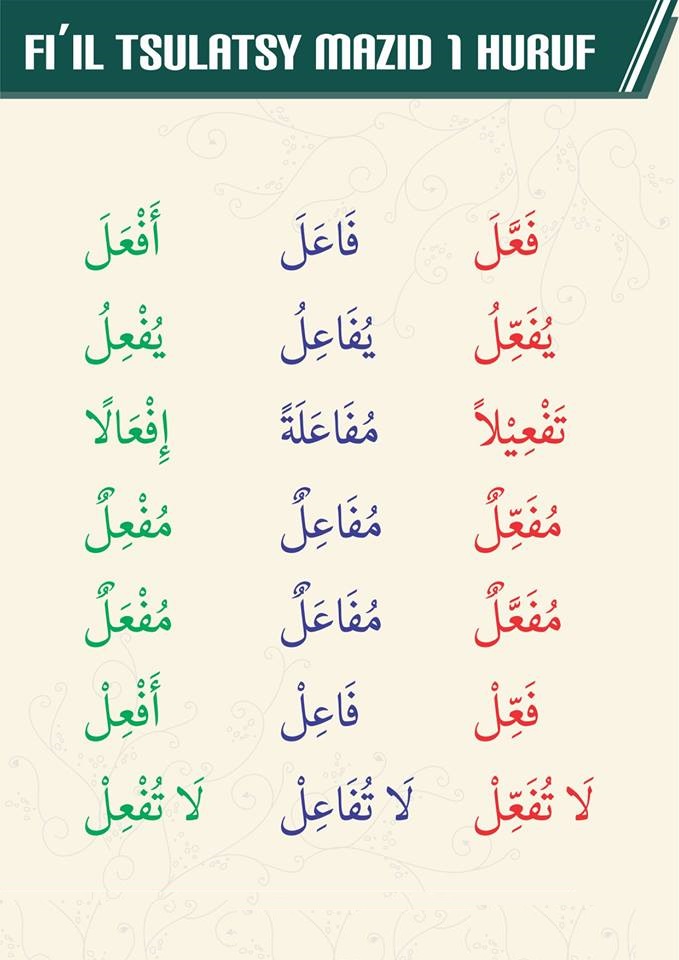 FI'IL TSULATSY MAZID 1 HURUF
فَعَّلَ فَاعَلَ أَفْعَلَ
يُفَعِّلُ يُفَاعِلُ يُفْعِلُ
تَفْعِيْلاً مُفَاعَلَةً إِفْعَالًا
مُفَعِّلٌ مُفَاعِلٌ مُفْعِلٌ
مُفَعَّلٌ مُفَاعَلٌ مُفْعَلٌ
فَعِّلْ فَاعِلْ أَفْعِلْ
لَا تُفَعِّلْ لَا تُفَاعِلْ لَا تُفْعِلْ